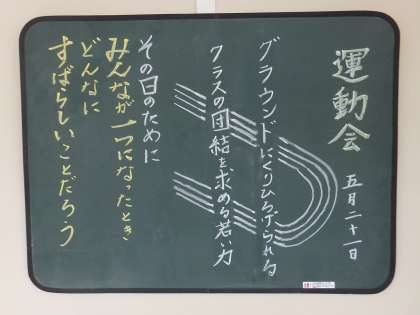 運動会
五月二十一日
グラウンドにくりひろげられる
クラスの団結を求める若い力
その日のために
みんなが一つになったとき
どんなに
すばらしいことだろう